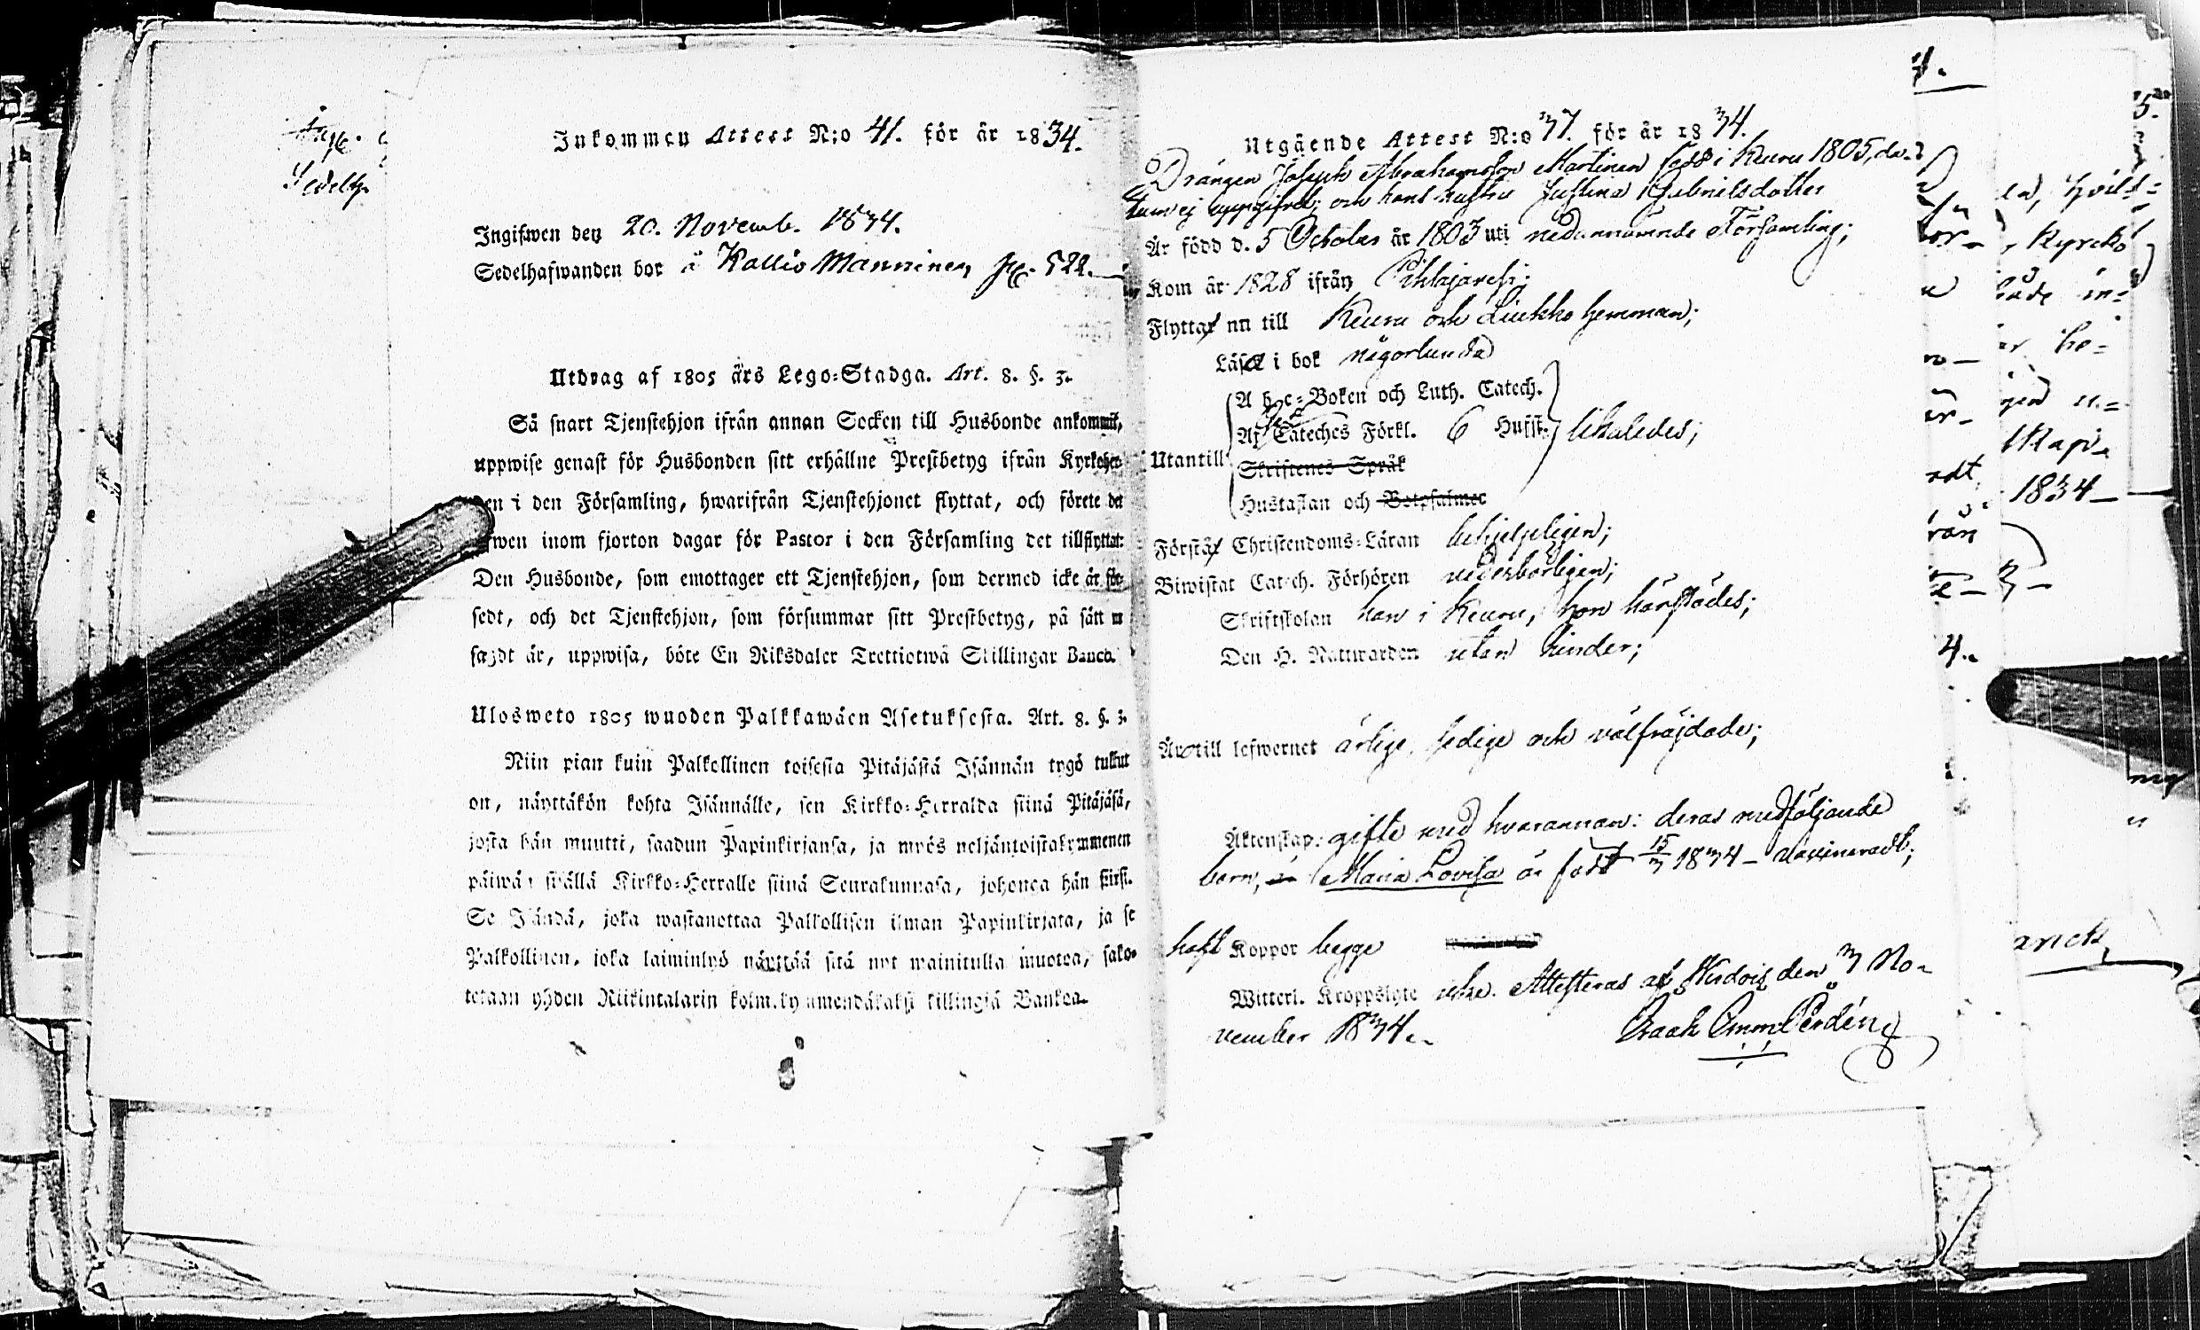 Inkommen Attest N:o 41. för år 1834.
Ingifwen den 20. Novemb. 1834.
Sedelhafwanden bor å Kallio Manninen pag. 522.
Utdrag af 1805 års Lego=Stadga. Art. 8. §. 3.
Så snart Tjenstehjon ifrån annan Socken till Husbonde ankommit,
uppwise genast för Husbonden sitt erhållne Prestbetyg ifrån Kyrkoher-
den i den Församling, hwarifrån Tjenstehjonet flyttat, och förete det
wen inom fjorton dagar för Pastor i den Församling det tillflyttat:
Den Husbonde, som emottager ett Tjenstehjon, som dermed icke är för-
sedt, och det Tjenstehjon, som försummar sitt Prestbetyg, på sätt
sagdt är, uppwisa, böte En Riksdaler Trettiotwå Skillingar Banco.
Ulosweto 1805 wuoden Palkkawäen Asetuksesta. Art. 8. §. 3.
Niin pian kuin Palkollinen toisesta Pitäjästä Isännän tygö tullut
on, näyttäkön kohta Isännälle, sen Kirkko=Herralda siinä Pitäjäsä,
josta hän muutti, saadun Papinkirjansa, ja myös neljäntoistakymmenen
päiwän sisällä Kirkko=Herralle siinä Seurakunnasa, johonca hän siirsi.
Se Isändä, joka wastanottaa Palkollisen ilman Papinkirjata, ja se
Palkollinen, joka laiminlyö näyttää sitä nyt mainitulla muotoa, sako-
tetaan yhden Riikintalarin kolm.kymmendäkaksi killingiä Bankoa.
Utgående Attest N:o 37. för år 1834.
Drängen Joseph Abrahamsson Martinen född i Keuru 1805, da-
tum ej uppgifvet; och hans hustru Justina Gabrielsdotter
Är född d. 5 October år 1803 uti nedannämnde Församling;
Kom år 1828 ifrån Pihlajavesi;
Flytta nu till Keuru och Liukko hemman;
Läsa i bok någorlunda
A b c=Boken och Luth. Catech.
Af Cateches Förkl. 6 Hufst. likaledes;
Utantill
Skriftenes Språk
Hustaflan och Botpsalmer
Förstå Christendoms=Läran behjelpeligen;
Biwistat Catech. Förhören vederbörligen;
Skriftskolan han i Keuru, hon härstädes;
Den H. Nattwarden utan hinder;
Äro till lefwernet ärlige, sedige och välfräjdade;
Äktenskap: gifte med hvarannan: deras medföljande
barn, Maria Lovisa är född 15/3 1834 - vaccinerad;
haft Koppor begge
Witterl. Kroppslyte icke. Attesteras af Wirdois den 3 No-
vember 1834.
Isaak Emml Perdén